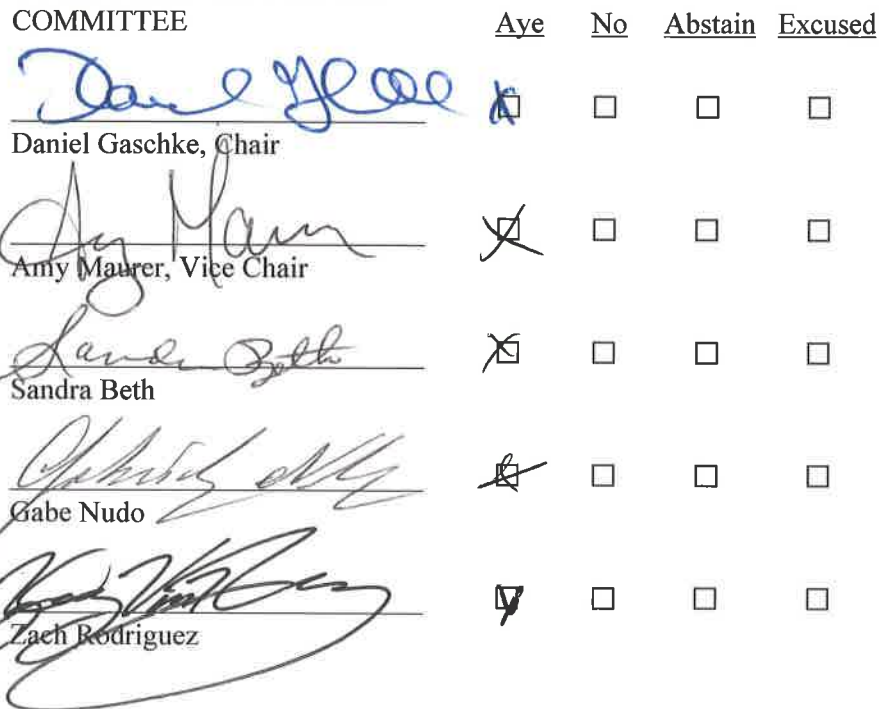 COMMITTEE Aye No Abstain Excused
Daniel Gaschke, Chair
Amy Maurer, Vice Chair
Sandra Beth
Gabe Nudo
Zach Rodriguez